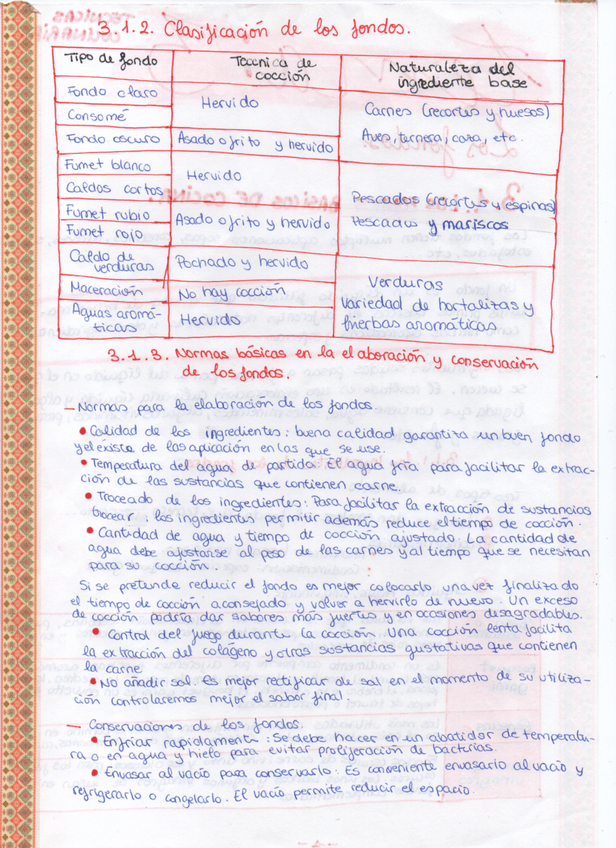 3.1.2. Clasificación de los fondos.
Tipo de fondo
Tecnica de
cocción
Naturaleza del
ingrediente base
Fondo claro
Hervido
Carnes (recortes y huesos)
Consomé
Aves, ternera, caza, etc.
Fondo oscuro
Asado o frito y hervido
Fumet blanco
Hervido
Caldos cortos
Pescados (recortes y espinas)
Fumet rubio
Asado o frito y hervido
Pescados y mariscos
Fumet rojo
Caldo de
verduras
Pochado y hervido
Verduras
Maceración
No hay cocción
Variedad de hortalizas y
hierbas aromáticas
Aguas aromá-
ticas
Hervido
3.1.3. Normas básicas en la elaboración y conservación
de los fondos.
— Normas para la elaboración de los fondos
• Calidad de los ingredientes: buena calidad garantiza un buen fondo
y el éxiste de las aplicación en las que se use.
• Temperatura del agua de partida. El agua fría para facilitar la extrac-
ción de las sustancias que contienen carne.
• Troceado de los ingredientes: Para facilitar la extracción de sustancias
trocear. los ingredientes permitir además reduce el tiempo de cocción.
• Cantidad de agua y tiempo de cocción ajustado. La cantidad de
agua debe ajustarse al peso de las carnes y al tiempo que se necesitan
para su cocción.
Si se pretende reducir el fondo es mejor colocarlo una vez finalizado
el tiempo de cocción aconsejado y volver a hervirlo de nuevo. Un exceso
de cocción podría dar sabores más fuertes y en ocasiones desagradables.
• Control del fuego durante la cocción. Una cocción lenta facilita
la extracción del colágeno y otras sustancias gustativas que contienen
la carne.
• No añadir sal. Es mejor rectificar de sal en el momento de su utiliza-
ción controlaremos mejor el sabor final.
— Conservaciones de los fondos.
• Enfriar rapidamente: Se debe hacer en un abatidor de temperatu-
ra o en agua y hielo para evitar proliferación de bacterias.
• Envasar al vacío para conservarlo. Es conveniente envasarlo al vacío y
refrigerarlo o congelarlo. El vacío permite reducir el espacio.